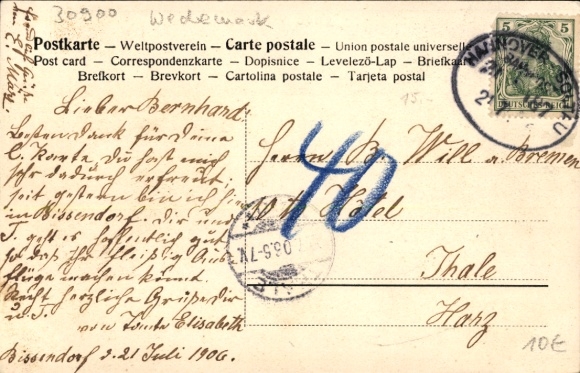 30900 Wedemark
Postkarte – Weltpostverein – Carte postale – Union postale universelle
Post card – Correspondenzkarte – Dopisnice – Levelező-Lap – Briefkaart
Brefkort – Brevkort – Cartolina postale – Tarjeta postal
5 5
DEUTSCHES REICH
HANNOVER
15.-
Lieber Bernhard!
Besten Dank für Deine
l. Karte, Du hast mich
sehr dadurch erfreut,
seit gestern bin ich hier
in Bissendorf. Dir und
J. geht es hoffentlich gut
so daß ihr fleißig Aus
flüge machen könnt.
Recht herzliche Grüße Dir
u. J.
von Tante Elisabeth
Bissendorf d. 21 Juli 1906.
Herrn B. Will a. Bremen
Hotel
Thale
Harz
40
10€